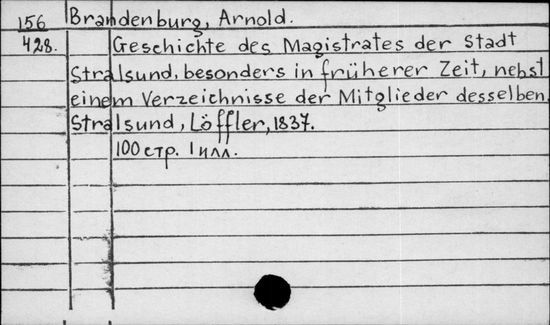 156 Brandenburg, Arnold.
428. Geschichte des Magistrates der Stadt
Stralsund, besonders in früherer Zeit, nebst
einem Verzeichnisse der Mitglieder desselben
Stralsund, Löffler, 1837.
100 стр. 1 илл.